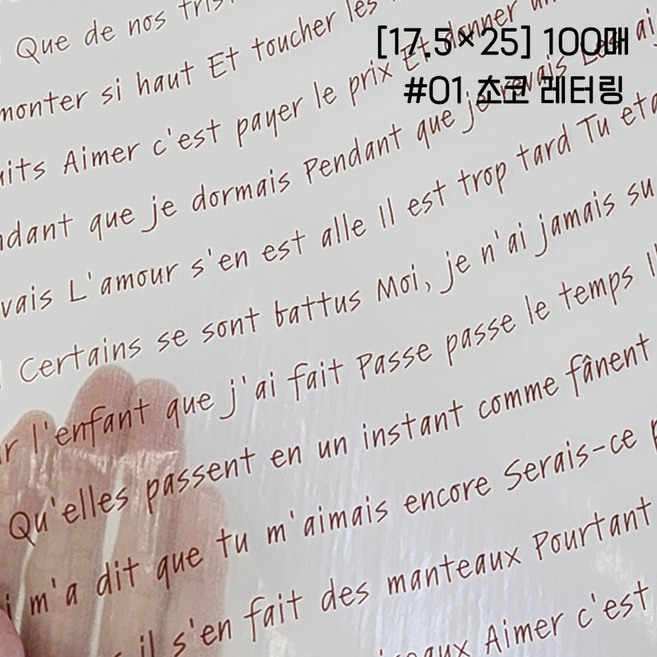 [17.5×25] 100매
#01 초코 레터링
Que de nos
monter si haut Et toucher les
Aimer c'est payer le prix Et donner
que je dormais Pendant que je rêvais Les
vais L'amour s'en est alle Il est trop tard Tu
Certains se sont battus Moi, je n'ai jamais su
r l'enfant que j'ai fait Passe passe le temps Il
Qu'elles passent en un instant comme fânent
m'a dit que tu m'aimais encore Serais-ce
il s'en fait des manteaux Pourtant
Aimer c'est